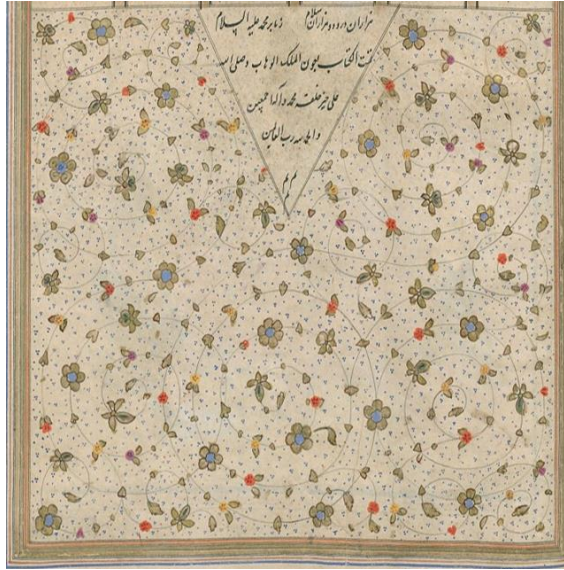 هزاران درود و هزاران سلام ز ما بر محمد علیه السلام
تمت الکتاب بعون الملک الوهاب و صلی الله
علی خیر خلقه محمد و آله اجمعین
رب العالمین
م م
م